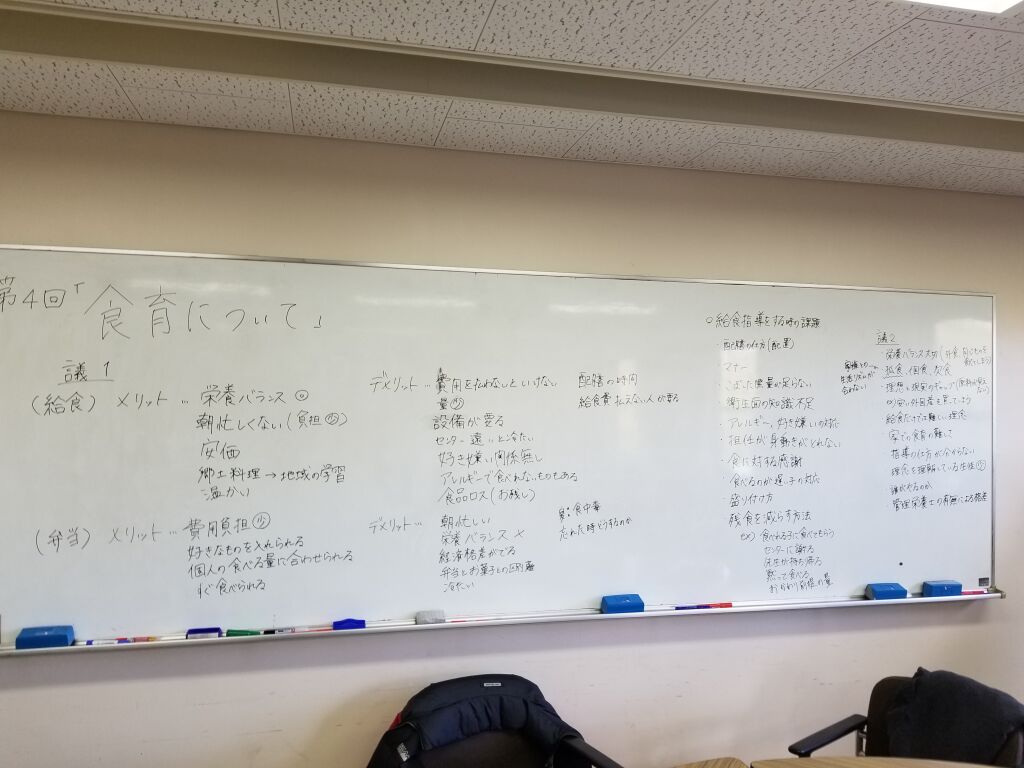 第4回「食育について」
議1
(給食) メリット… 栄養バランス◎
朝忙しくない(負担㋱)
安価
郷土料理→地域の学習
温かい
デメリット… 費用を払わないといけない
設備が要る
センター遠いと冷たい
好き嫌い関係無し
アレルギーで食べれないものもある
食品ロス(お残し)
配膳の時間
給食費払えない人が要る
(弁当) メリット… 費用負担㋛
好きなものを入れられる
個人の食べる量に合わせられる
すぐ食べられる
デメリット… 朝忙しい
栄養バランス×
経済格差がでる
弁当とお菓子との区別
冷たい
夏:食中毒
忘れた時どうするのか
○給食指導をする時の課題
・配膳の仕方(配置)
・マナー
・こぼした際量が足らない
・衛生面の知識不足
・アレルギー、好き嫌いの対応
・担任が身動きがとれない
・食に対する感謝
・食べるのが遅い子の対応
・盛り付け方
・残食を減らす方法
ex) 食べれる子に食べてもらう
センターに謝る
先生が持ち帰る
黙って食べる
おかわり前提の量
議2
・栄養バランス大切
・孤食、個食、欠食
・理想と現実のギャップ
・給食だけでは難しい理念
・家での食育の難しさ
・指導の仕方が分からない
・理念を理解している先生
・誰がやるのか
・管理栄養士の有無による格差